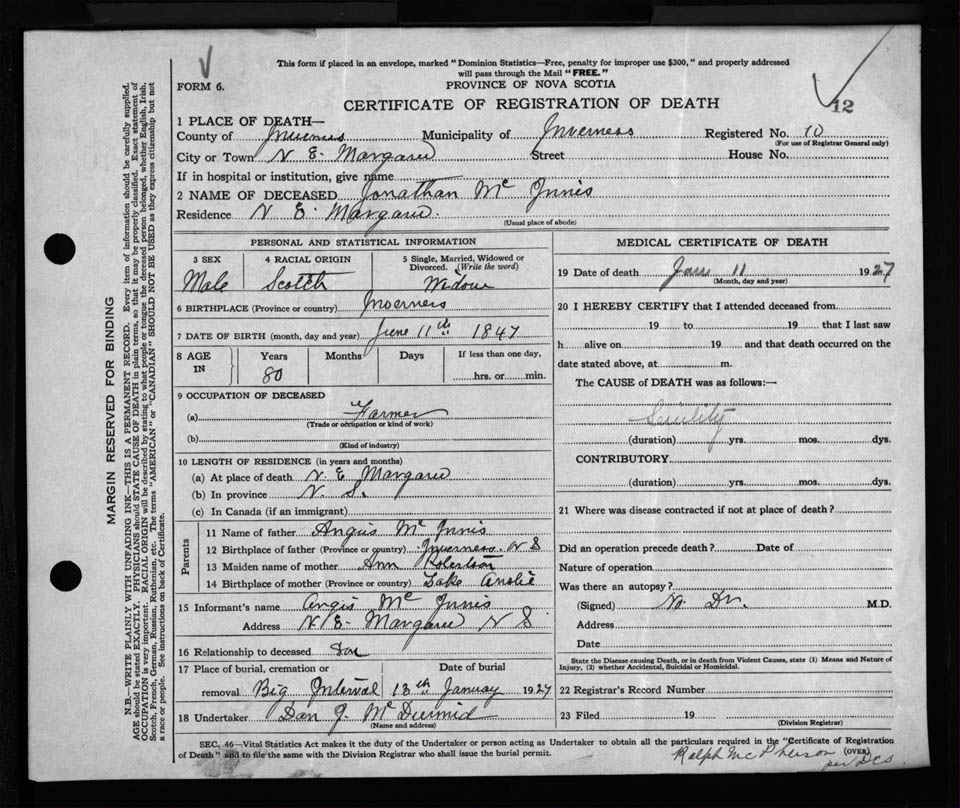 This form if placed in an envelope, marked "Dominion Statistics—Free, penalty for improper use $300," and properly addressed
will pass through the Mail "FREE."
FORM 6.
PROVINCE OF NOVA SCOTIA
CERTIFICATE OF REGISTRATION OF DEATH
12
1 PLACE OF DEATH—
County of Inverness Municipality of Inverness Registered No. 10
(For use of Registrar General only)
City or Town N E. Margaree Street House No.
If in hospital or institution, give name
2 NAME OF DECEASED Jonathan Mc Innis
Residence N E. Margaree.
(Usual place of abode)
PERSONAL AND STATISTICAL INFORMATION
3 SEX 4 RACIAL ORIGIN 5 Single, Married, Widowed or Divorced. (Write the word)
Male Scotch Widow
6 BIRTHPLACE (Province or country) Inverness
7 DATE OF BIRTH (month, day and year) June 11th 1847
8 AGE IN Years Months Days If less than one day,
80 hrs. or min.
9 OCCUPATION OF DECEASED
(a) Farmer
(Trade or occupation or kind of work)
(b)
(Kind of industry)
10 LENGTH OF RESIDENCE (in years and months)
(a) At place of death N. E Margaree
(b) In province N. S.
(c) In Canada (if an immigrant)
Parents
11 Name of father Angus Mc Innis
12 Birthplace of father (Province or country) Inverness. N S
13 Maiden name of mother Ann Robertson
14 Birthplace of mother (Province or country) Lake Anslie
15 Informant's name Angis Mc Innis
Address N E. Margaree N S
16 Relationship to deceased Son
17 Place of burial, cremation or Date of burial
removal Big Interval 13th January 1927
18 Undertaker Dan J. McDiermid
(Name and address)
MEDICAL CERTIFICATE OF DEATH
19 Date of death Jan 11 1927
(Month, day and year)
20 I HEREBY CERTIFY that I attended deceased from
19 to 19 that I last saw
h alive on 19 and that death occurred on the
date stated above, at m.
The CAUSE of DEATH was as follows:—
Senility
(duration) yrs. mos. dys.
CONTRIBUTORY
(duration) yrs. mos. dys.
21 Where was disease contracted if not at place of death?
Did an operation precede death? Date of
Nature of operation
Was there an autopsy?
(Signed) No Dr. M.D.
Address
Date
State the Disease causing Death, or in death from Violent Causes, state (1) Means and Nature of
Injury, (2) whether Accidental, Suicidal or Homicidal.
22 Registrar's Record Number
23 Filed 19
(Division Registrar)
SEC. 46—Vital Statistics Act makes it the duty of the Undertaker or person acting as Undertaker to obtain all the particulars required in the "Certificate of Registration
of Death" and to file the same with the Division Registrar who shall issue the burial permit.
(OVER)
Ralph McPherson
per DCS
MARGIN RESERVED FOR BINDING
N.B.—WRITE PLAINLY WITH UNFADING INK—THIS IS A PERMANENT RECORD. Every item of information should be carefully supplied.
AGE should be stated EXACTLY. PHYSICIANS should STATE CAUSE OF DEATH in plain terms, so that it may be properly classified. Exact statement of
OCCUPATION is very important. RACIAL ORIGIN will be described by stating to what people or tongue the deceased person belonged, whether English, Irish,
Scotch, French, German, Russian, Ruthenian, etc. The terms "AMERICAN" or "CANADIAN" SHOULD NOT BE USED as they express citizenship but not
a race or people. See instructions on back of Certificate.